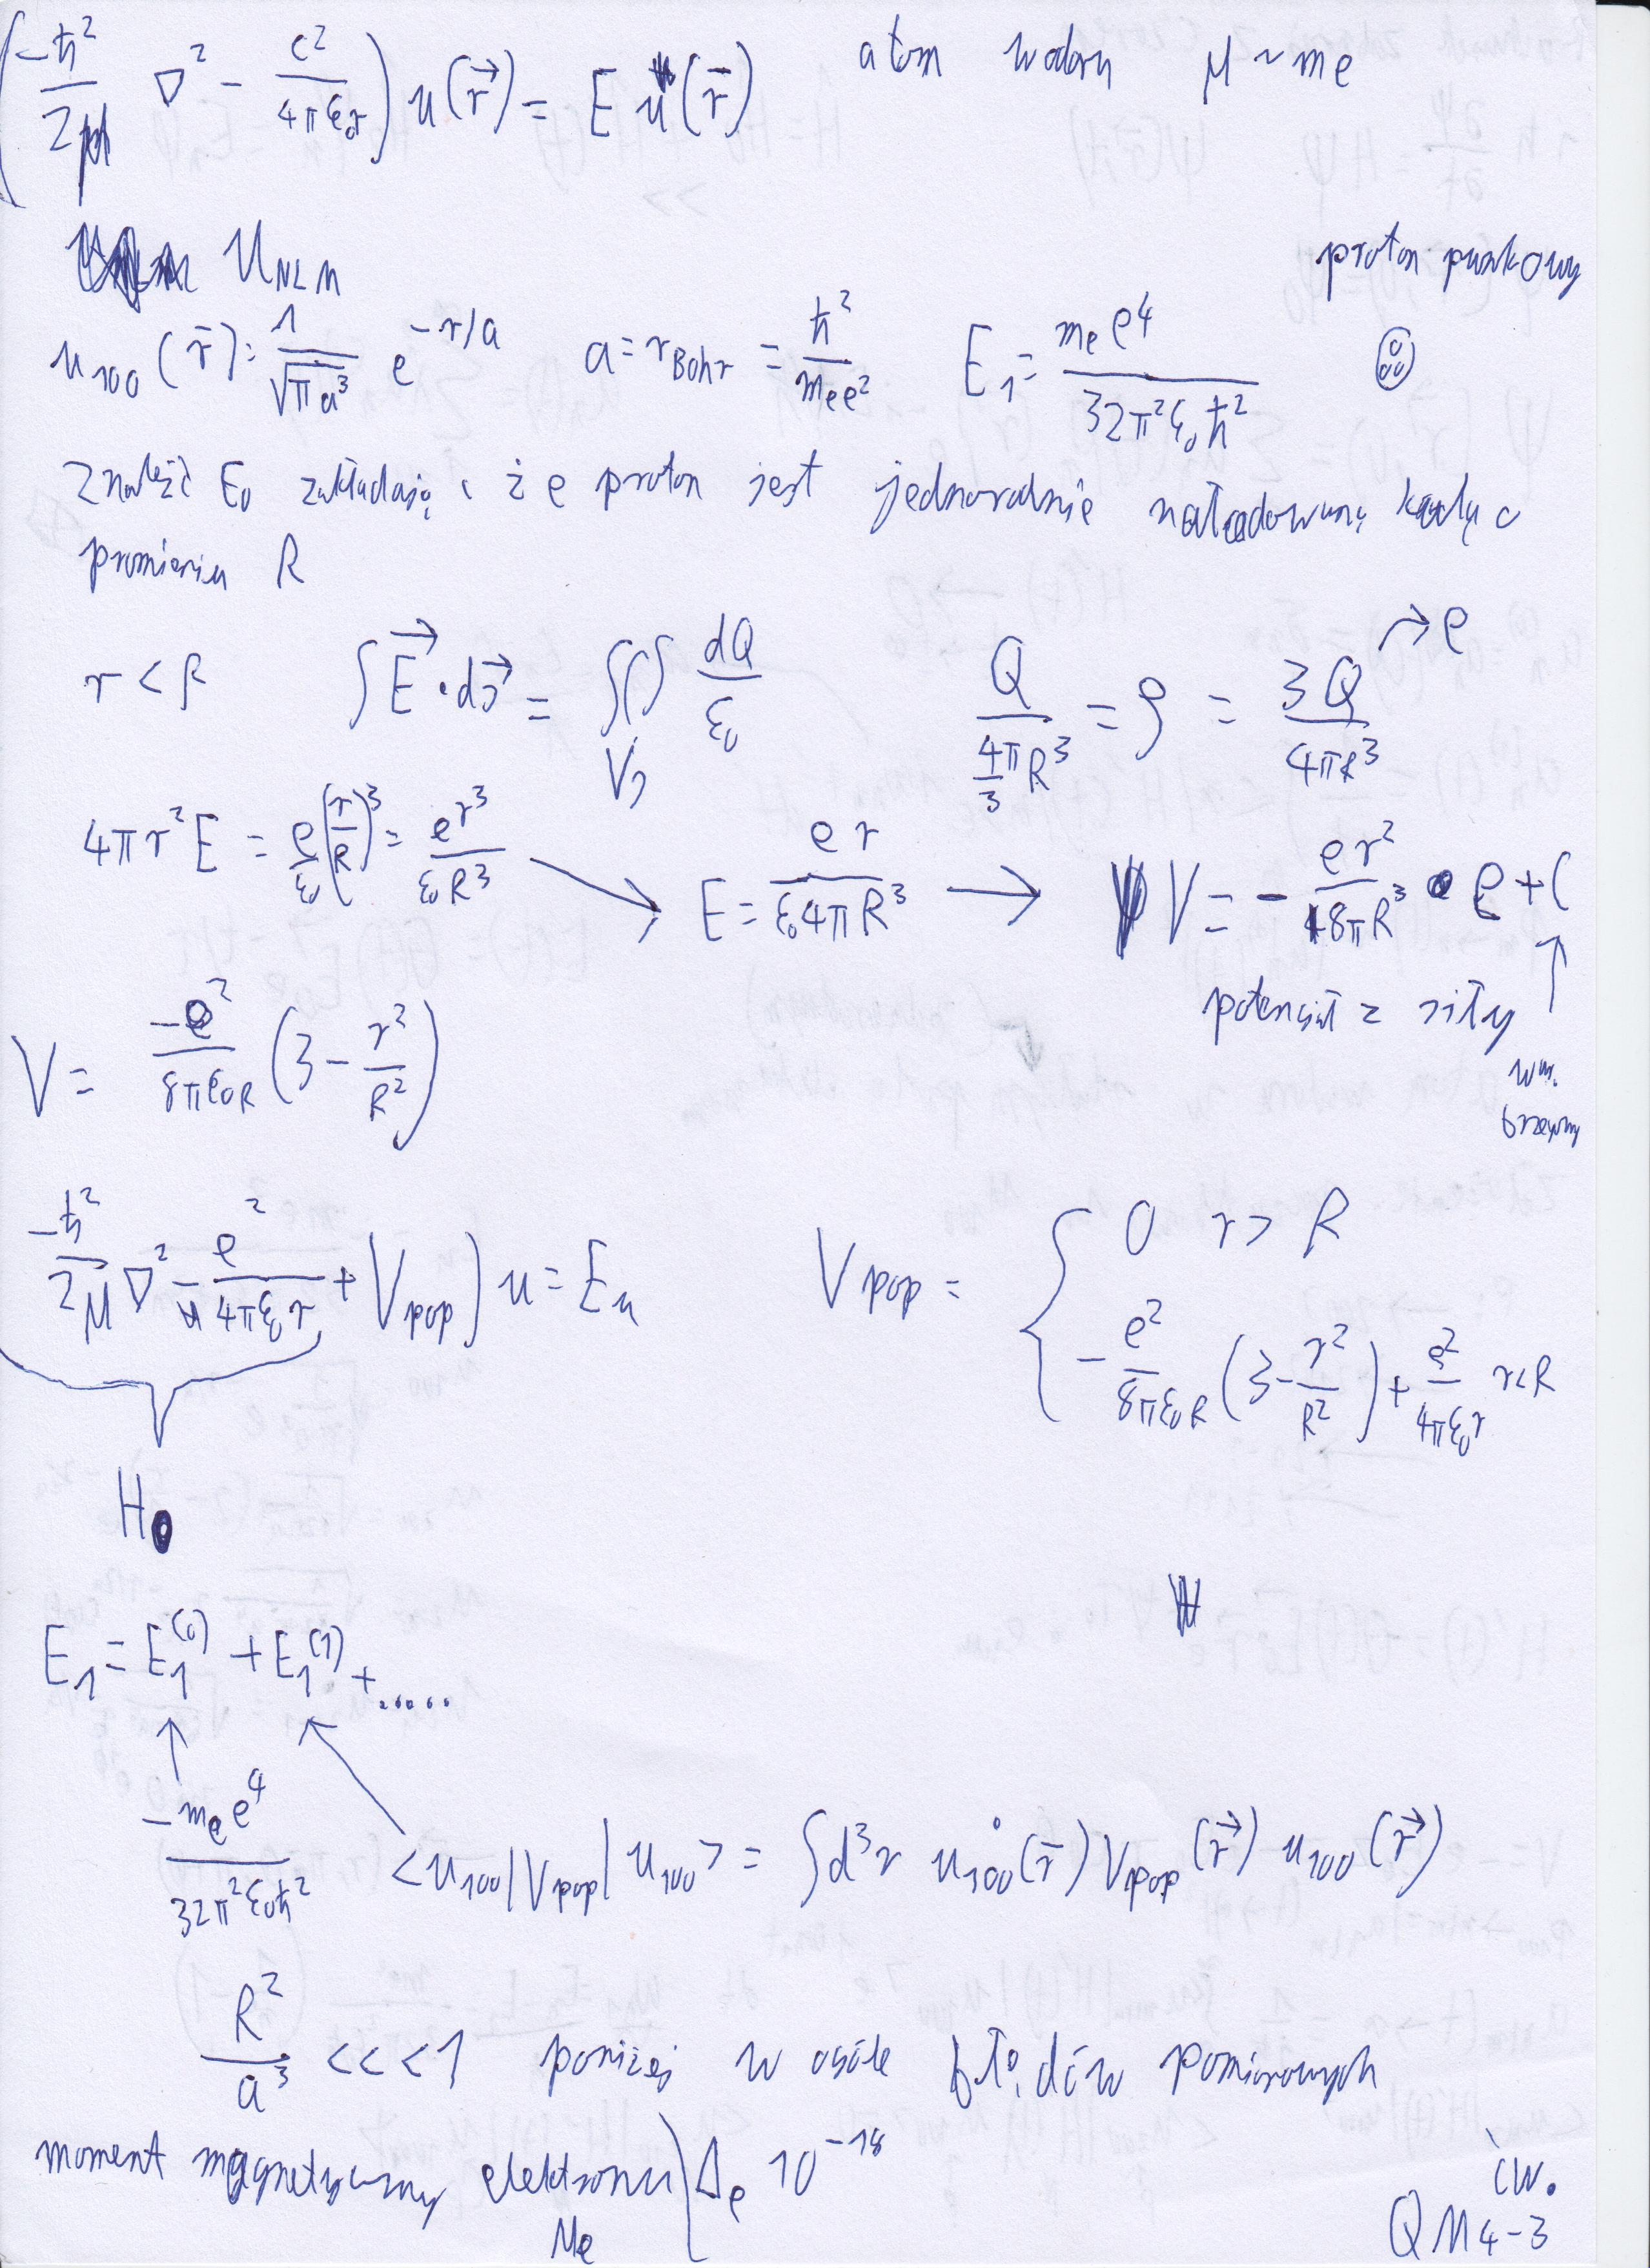 (-ħ²/2μ ∇² - e²/4πε₀r) u(r⃗) = E u(r̄) atom wodoru μ ~ me
u_NLM
proton punkowy
u₁₀₀(r̄) = 1/√(πa³) e^(-r/a) a = r_Bohr = ħ²/(m_e e²) E₁ = m_e e⁴/(32π²ε₀ħ²)
Znaleźć E₀ zakładając że proton jest jednorodnie naładowaną kulą o
promieniu R
r < R ∫E⃗·ds⃗ = ∭_Vs dQ/ε₀ Q/(4/3 πR³) = ρ = 3Q/(4πR³) → e
4πr²E = e/ε₀ (r/R)³ = er³/(ε₀R³) → E = er/(ε₀4πR³) → V = - er²/(8πR³) · e + C
potencjał z siły ↑
V = -e²/(8πε₀R) (3 - r²/R²)
war.
brzegowy
-ħ²/2μ ∇² - e²/(4πε₀r) + V_pop) u = Eu V_pop = { 0 r > R
-e²/(8πε₀R) (3 - r²/R²) + e²/(4πε₀r) r < R
H₀
E₁ = E₁⁽⁰⁾ + E₁⁽¹⁾ + .....
-m_e e⁴/(32π²ε₀ħ²) <u₁₀₀|V_pop|u₁₀₀> = ∫d³r u₁₀₀*(r̄) V_pop(r⃗) u₁₀₀(r⃗)
R²/a³ <<<1 poniżej w ogóle błędów pomiarowych
moment magnetyczny elektronu) Δe 10⁻¹⁸
μe
ćw.
QM4-3